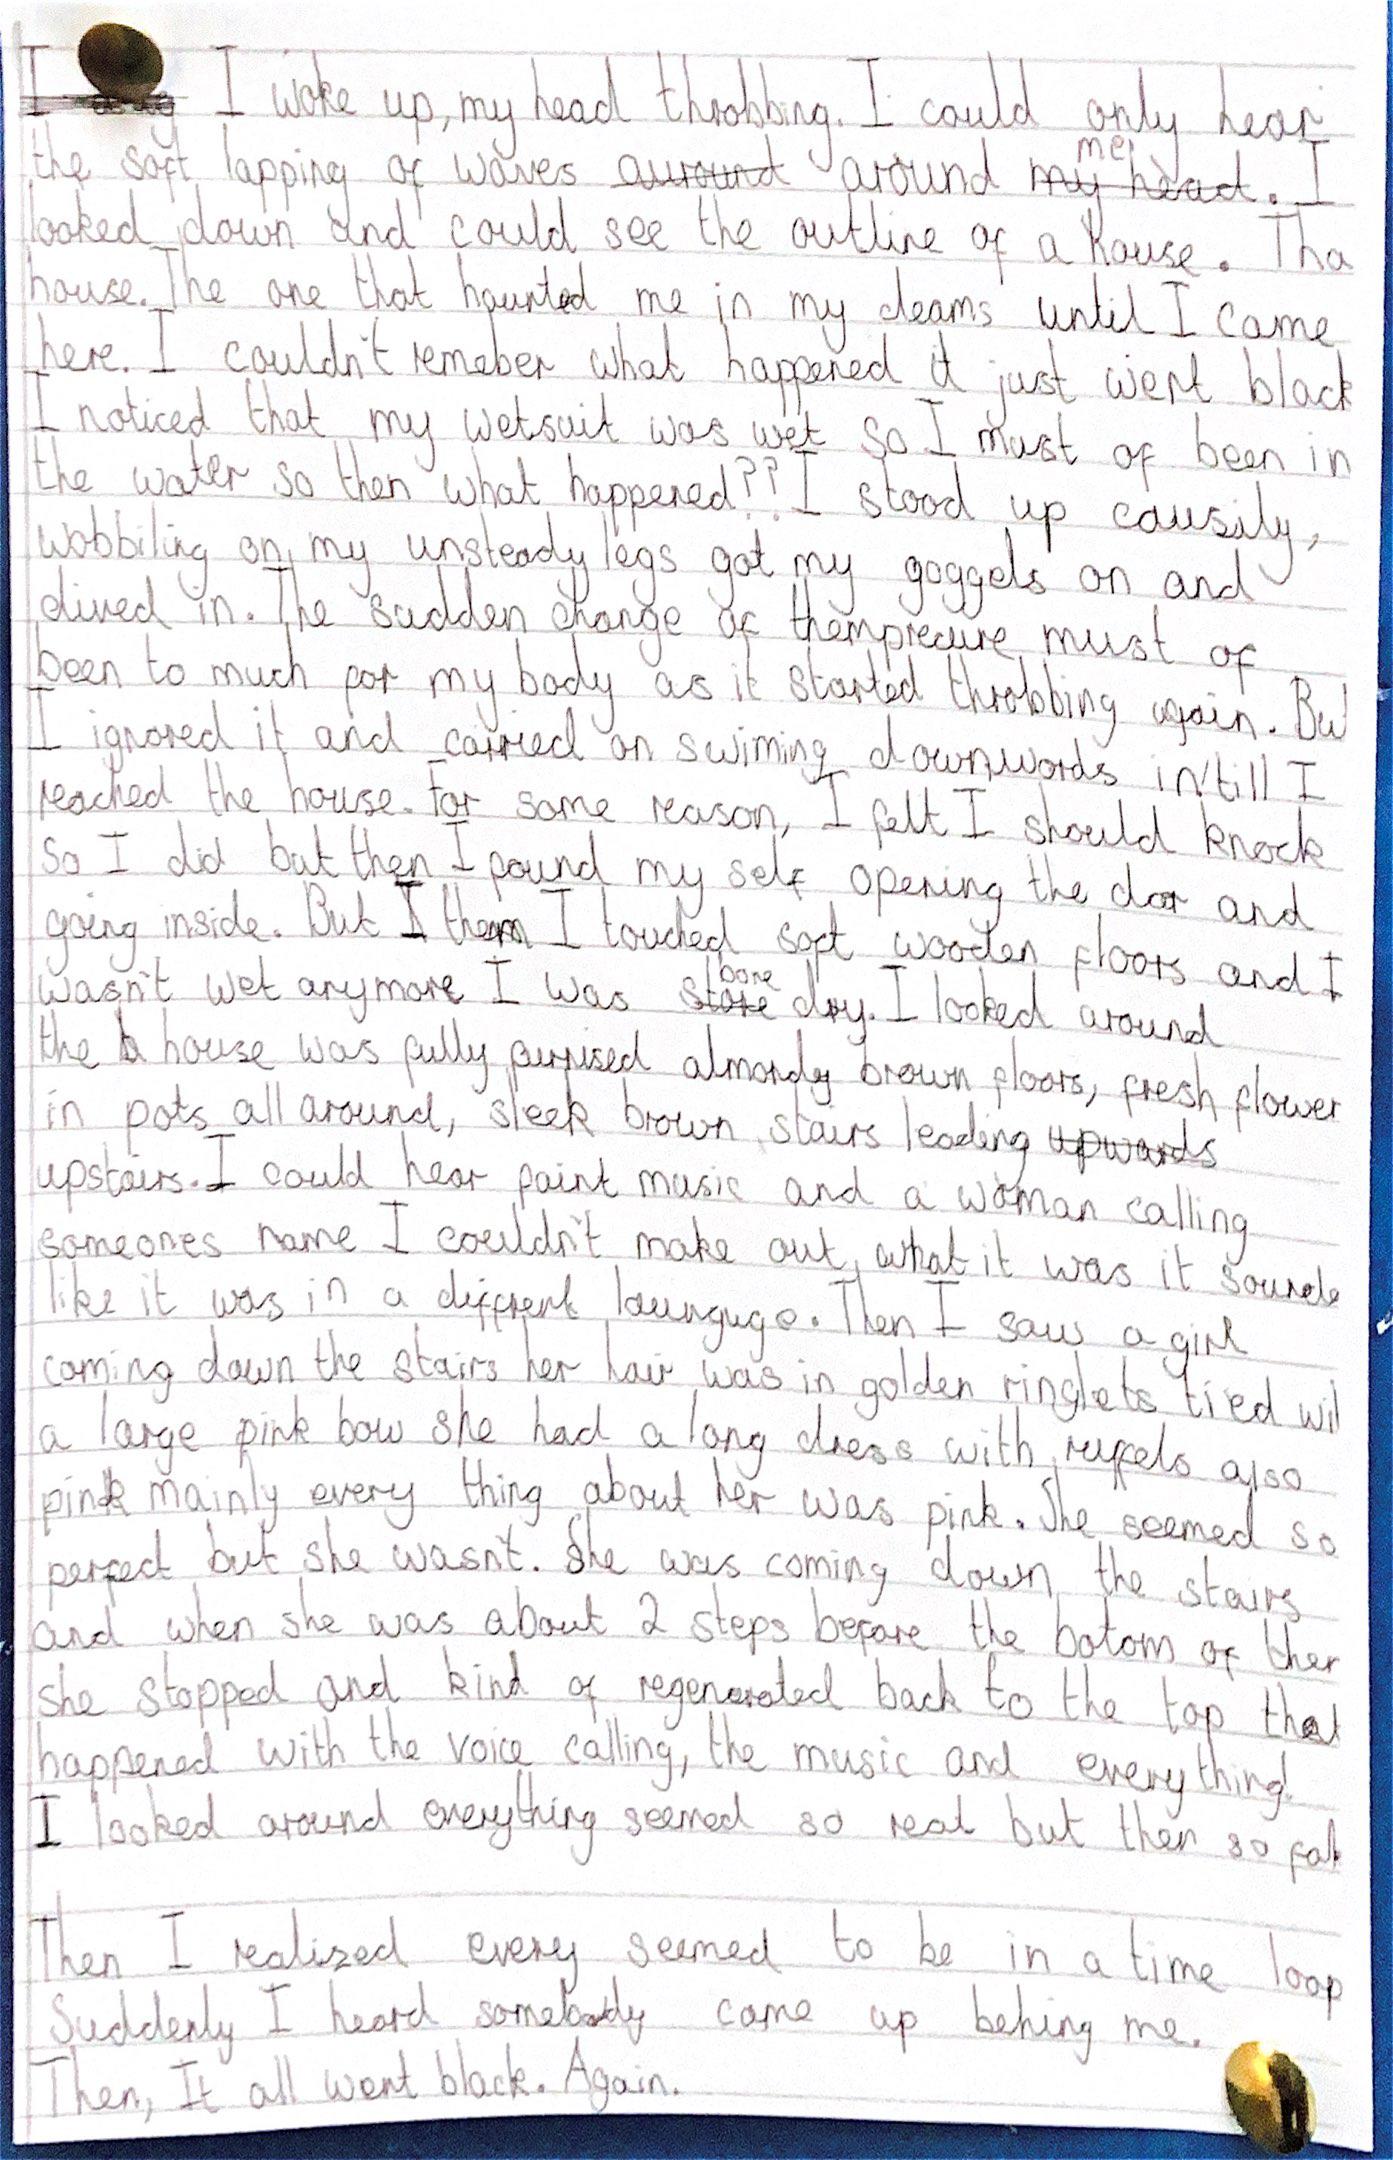 I I woke up, my head throbbing. I could only hear
the soft lapping of waves auround around my head me. I
looked down and could see the outline of a house. Tha
house. The one that haunted me in my deams until I came
here. I couldn't remeber what happened it just went black
I noticed that my wetsuit was wet so I must of been in
the water so then what happened?? I stood up causily,
wobbiling on my unsteady legs got my goggels on and
dived in. The sudden change of themprecure must of
been to much for my body as it started throbbing again. But
I ignored it and carried on swiming downwords in'till I
reached the house. For some reason, I felt I should knock
so I did but then I found my self opening the dor and
going inside. But I then I touched soft wooden floors and I
wasn't wet anymore I was stone bone dry. I looked around
the h house was fully furnised almondy brown floors, fresh flower
in pots all around, sleek brown stairs leading upwards
upstairs. I could hear faint music and a woman calling
someones name I couldn't make out what it was it sounde
like it was in a diffrent launguge. Then I saw a girl
coming down the stairs her hair was in golden ringlets tied wi
a large pink bow she had a long dress with ruffels also
pink mainly every thing about her was pink. She seemed so
perfect but she wasn't. She was coming down the stairs
and when she was about 2 steps before the botom of ther
she stopped and kind of regenerated back to the top that
happened with the voice calling, the music and everything.
I looked around everything seemed so real but then so fak
Then I realized every seemed to be in a time loop
Suddenly I heard somebody come up behing me.
Then, It all went black. Again.